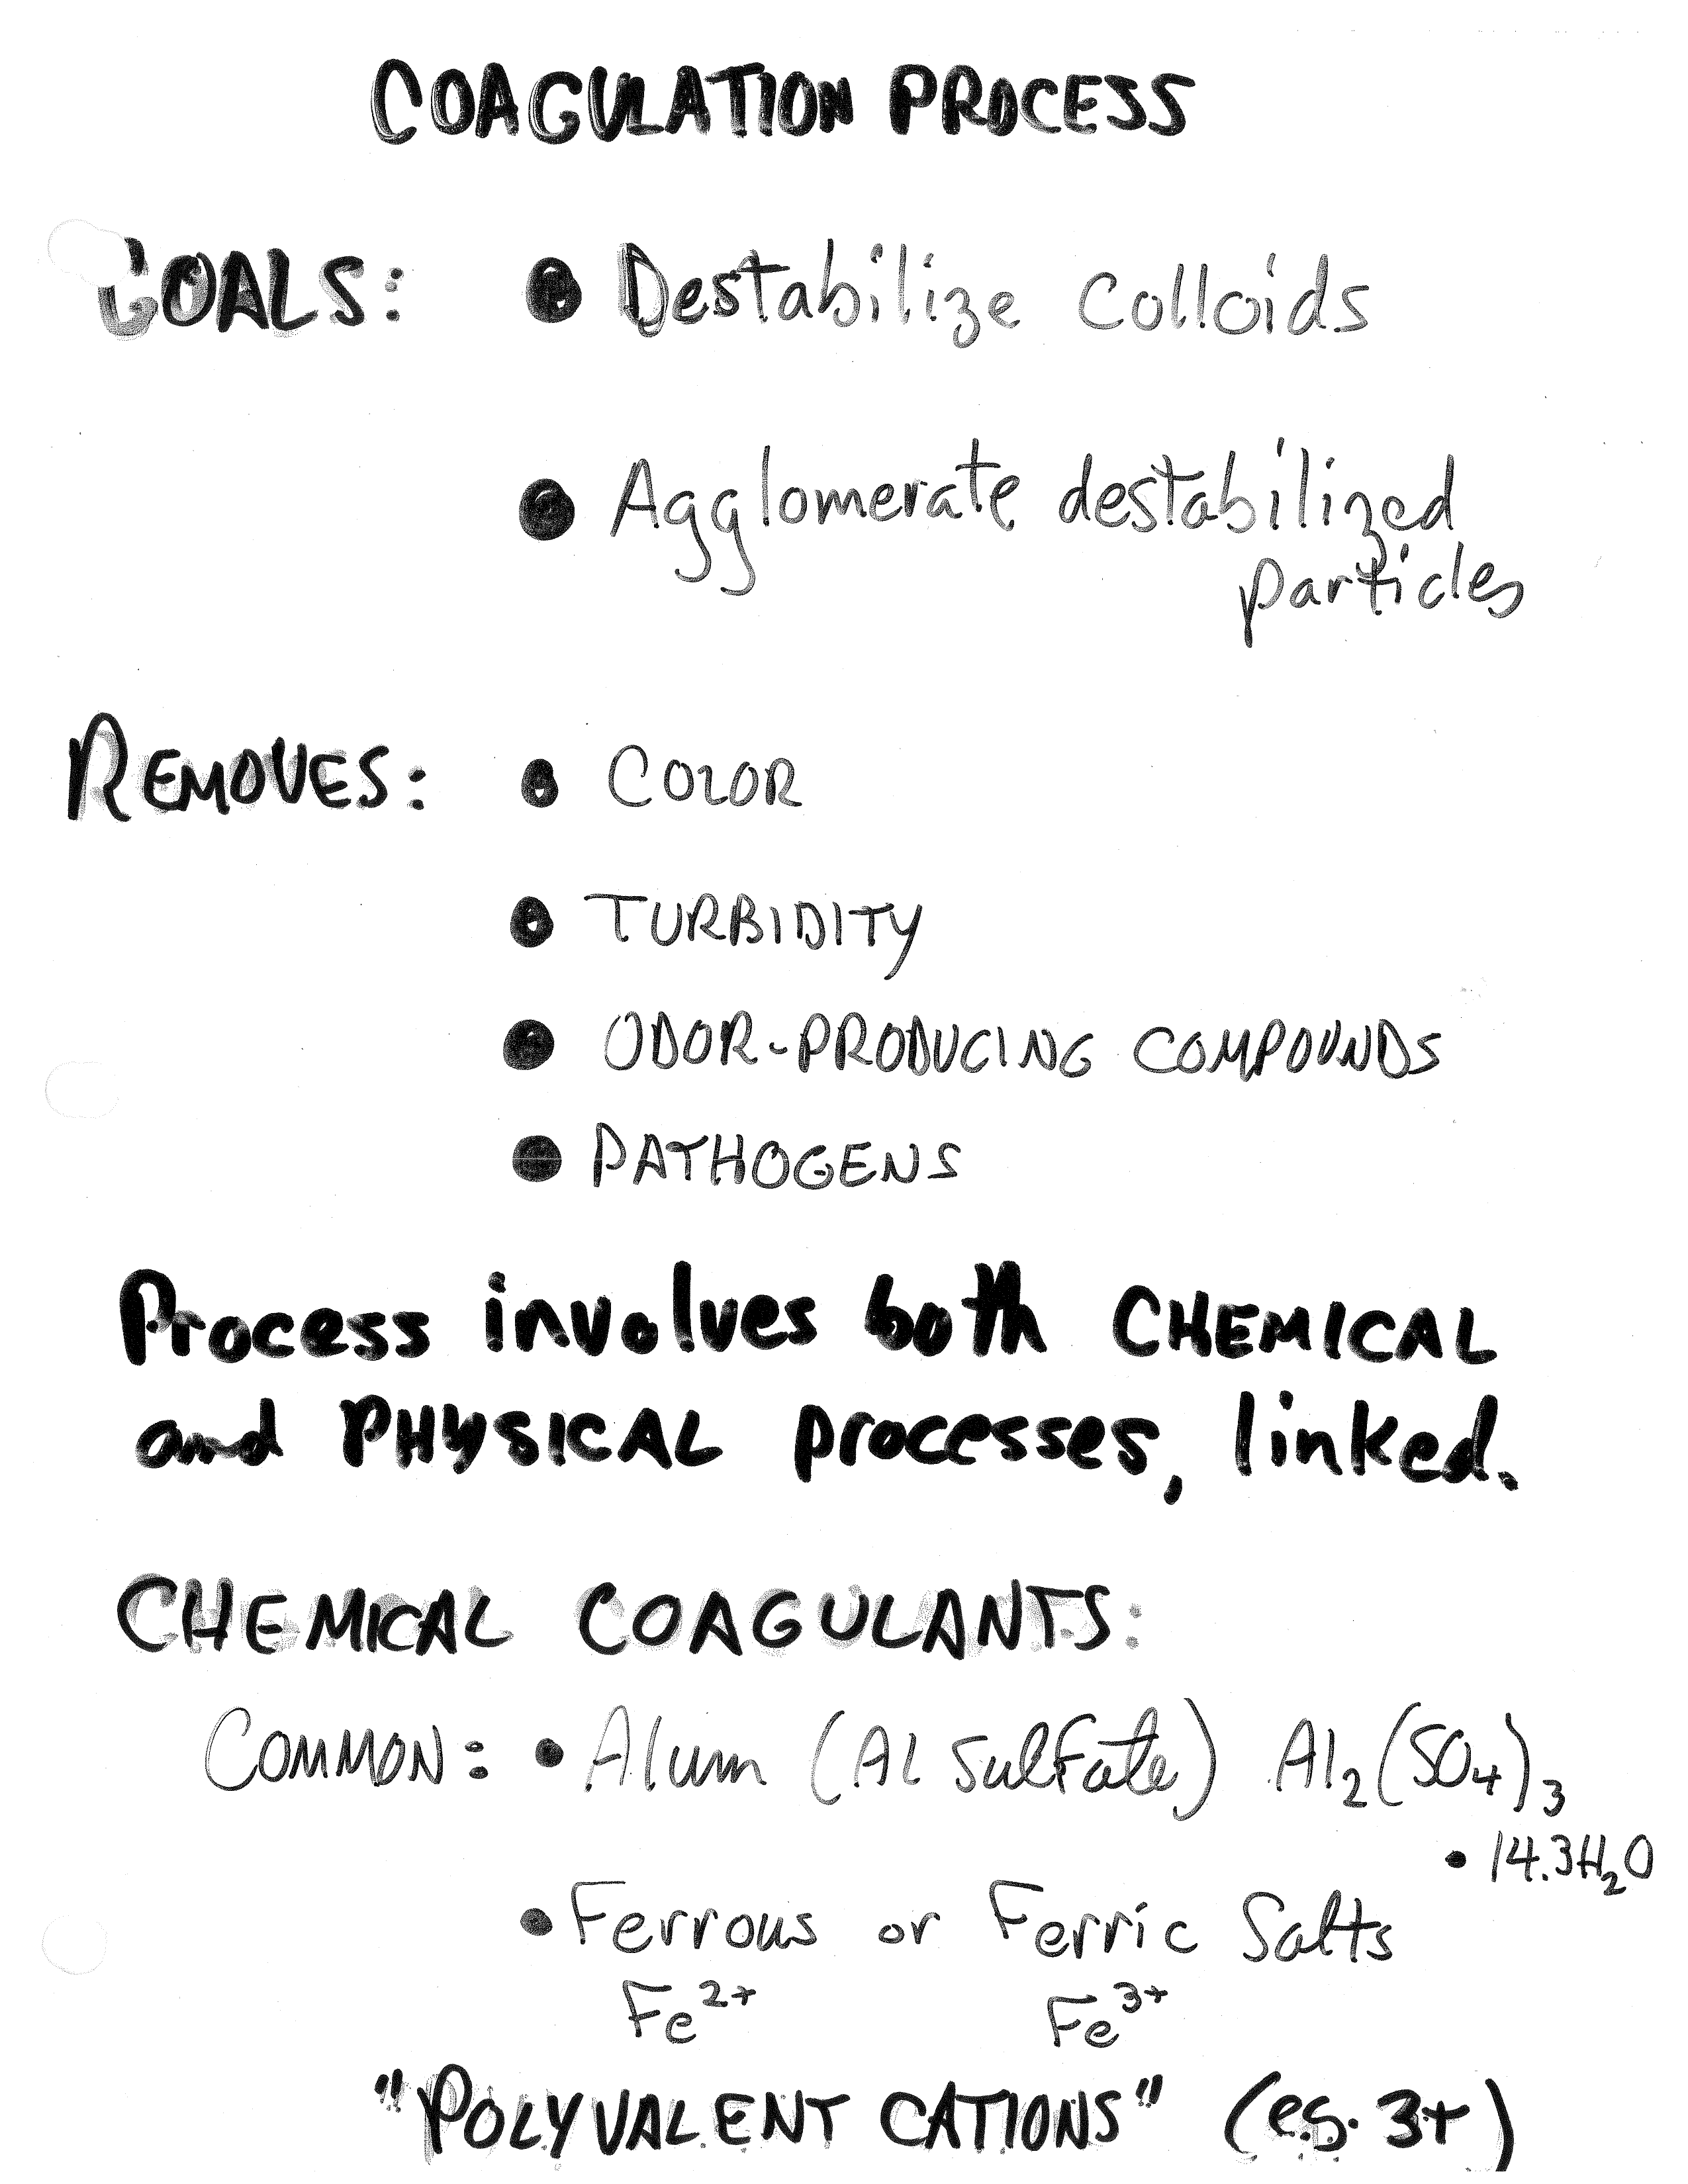 COAGULATION PROCESS
GOALS: • Destabilize Colloids
• Agglomerate destabilized
particles
REMOVES: • COLOR
• TURBIDITY
• ODOR-PRODUCING COMPOUNDS
• PATHOGENS
Process involves both CHEMICAL
and PHYSICAL processes, linked.
CHEMICAL COAGULANTS:
COMMON: • Alum (Al sulfate) Al₂(SO₄)₃
• 14.3H₂O
• Ferrous or Ferric Salts
Fe²⁺ Fe³⁺
"POLYVALENT CATIONS" (eg. 3+)